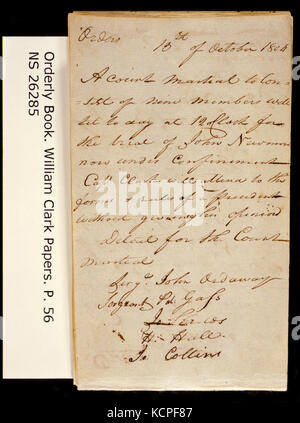 Orderly Book. William Clark Papers. P. 56
NS 26285
Orders
13th of October 1804
A court Martial to Con-
sist of nine members will
set to day at 12 oClock for
the trial of John Newmon
now under Confinement
Capt Clark will attend to the
forms & rules of a president
without giveing his opinion
Detail for the Court
Martial
Sergt. John Ordaway
Sergeant Pat. Gass
H. Hall
Jo. Collins
alamy
Image ID: KCPF87
www.alamy.com